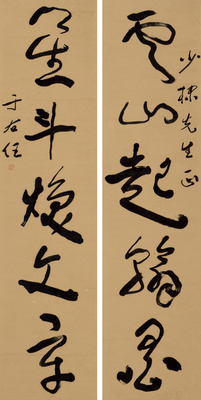 少棣先生正
雲山起翰墨
星斗煥文章
于右任